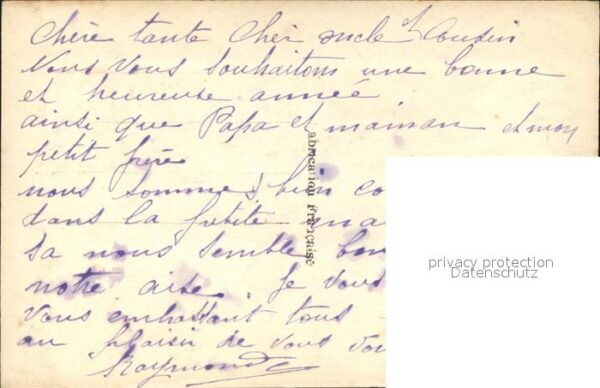 Chère tante Cher oncle et Cousin
Nous Vous souhaitons une bonne
et heureuse année
ainsi que Papa et maman et mon
petit frère
nous sommes bien co
dans la petite ma
sa nous semble bon
notre aise. Je vous
Vous embrassant tous
au plaisir de vous vo
Raymonde
abrication Française
privacy protection
Datenschutz